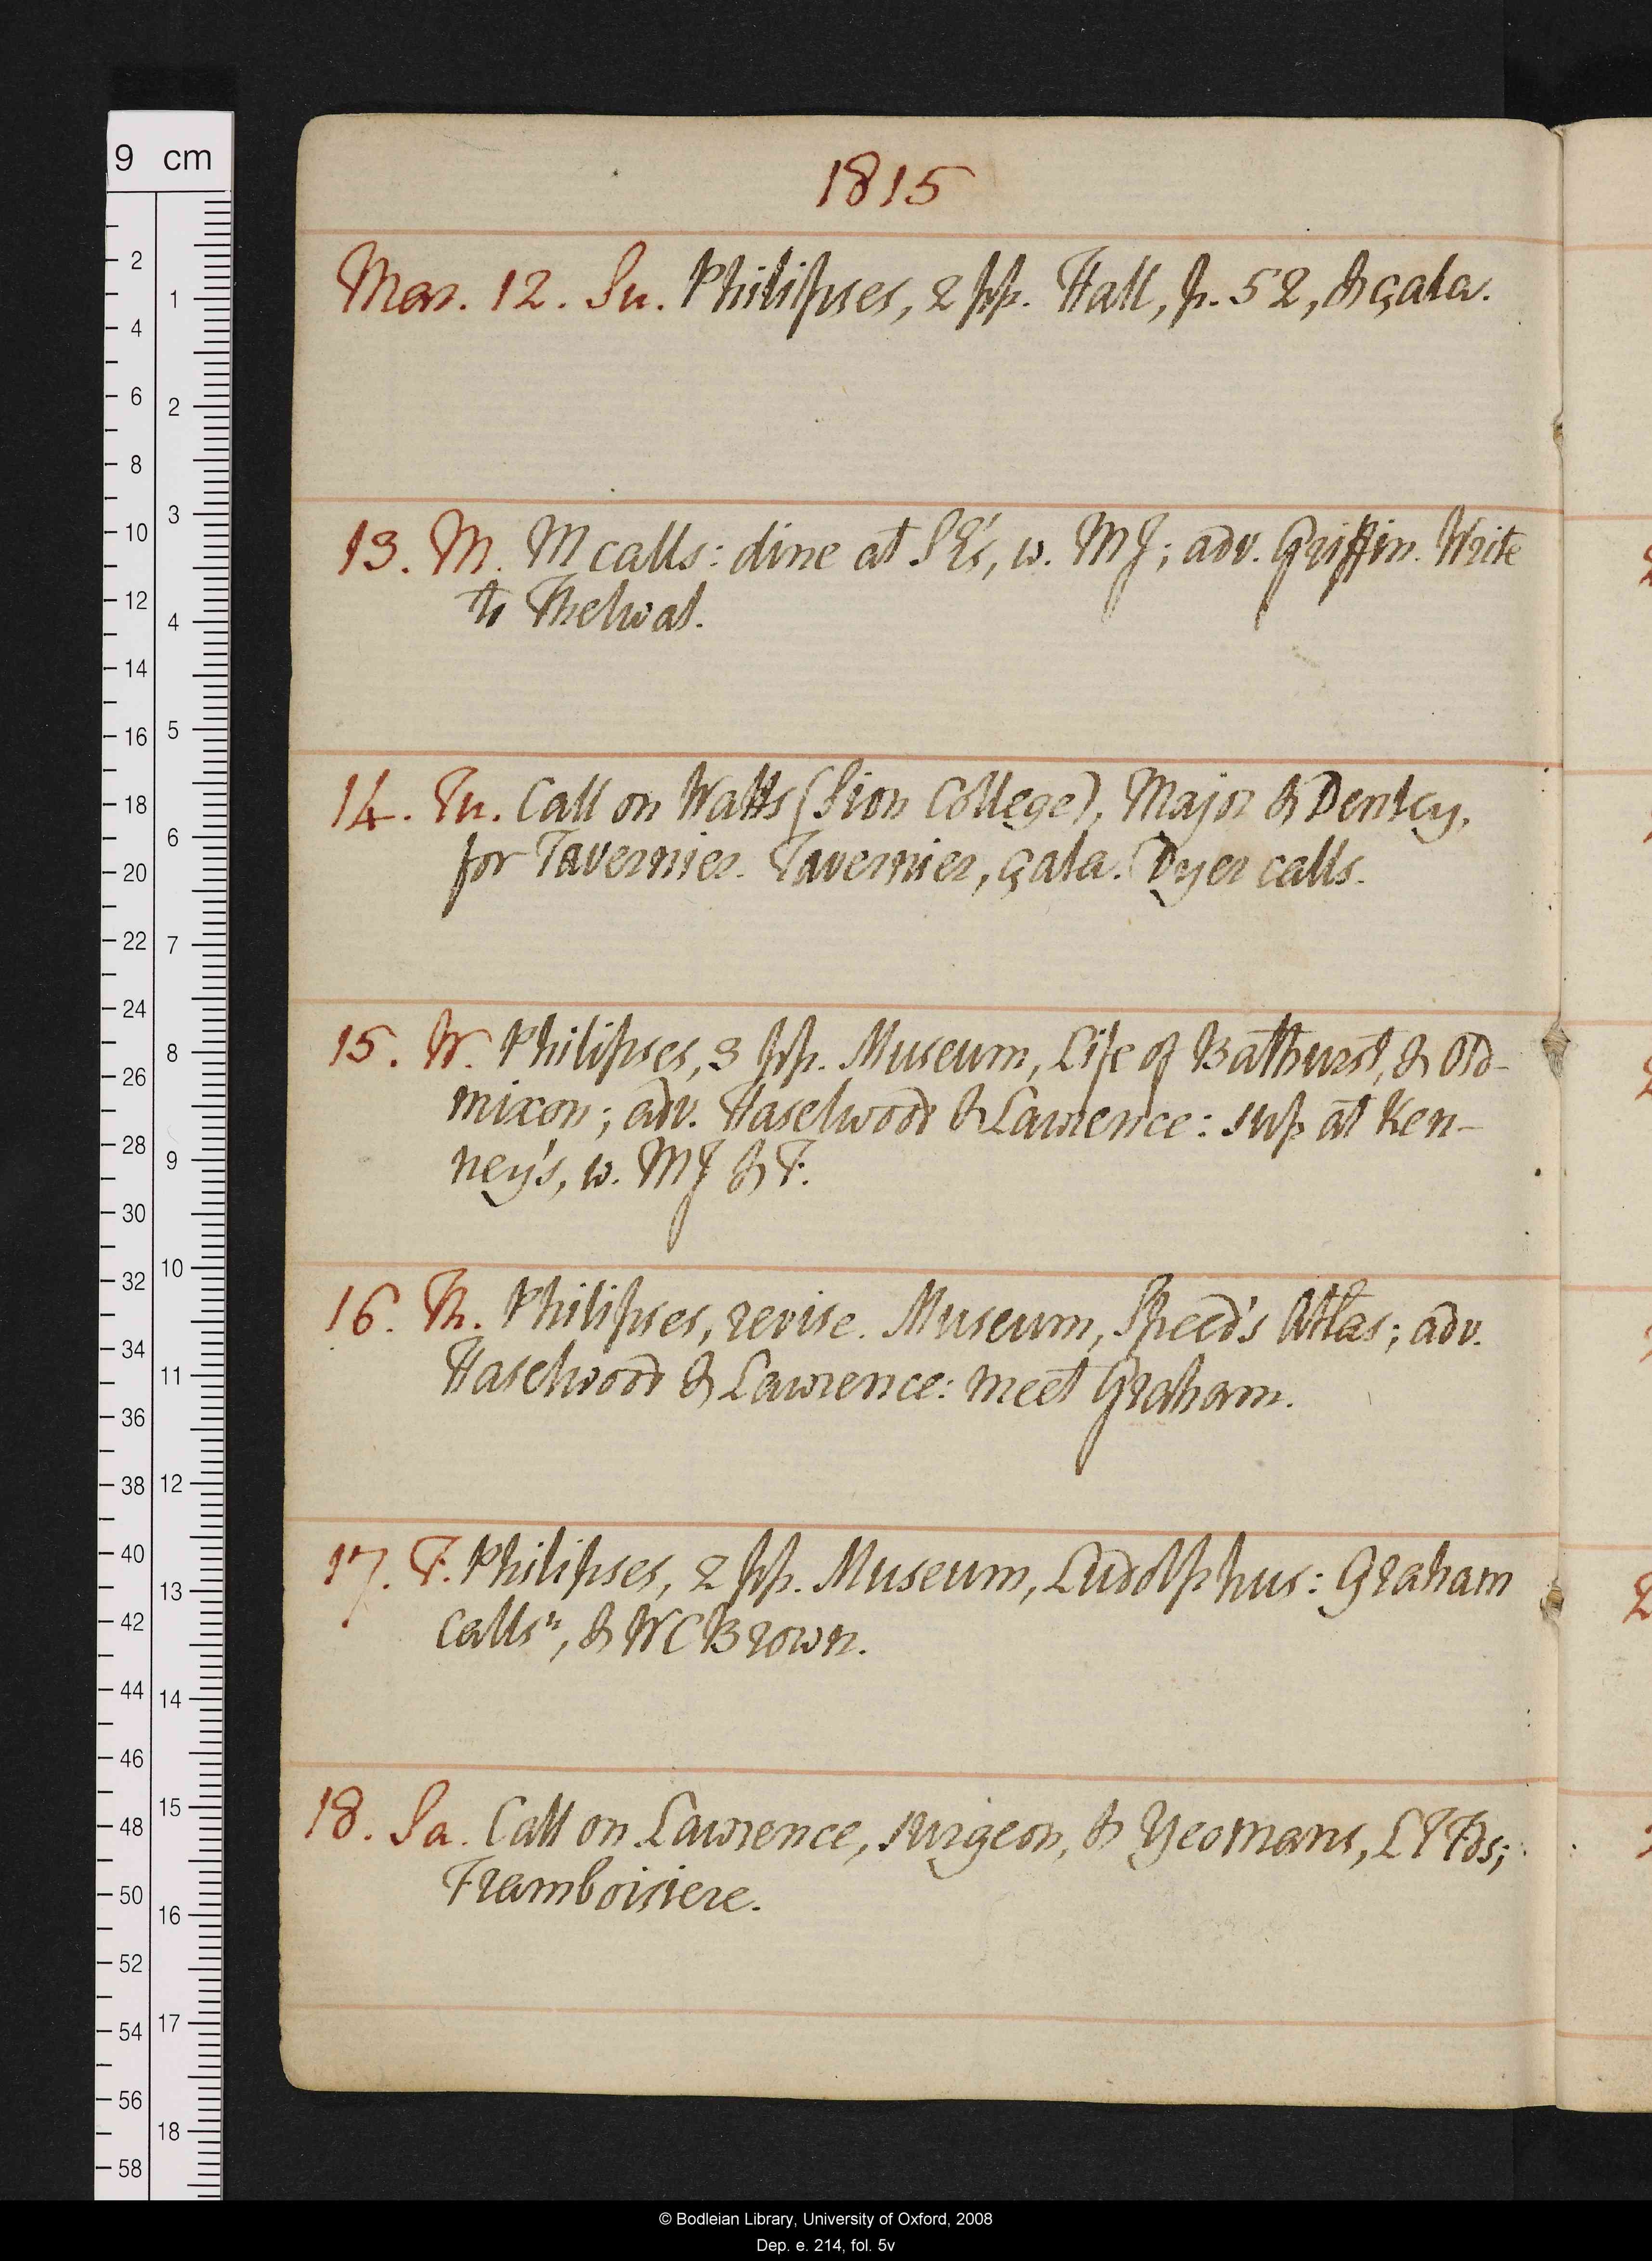 1815
Mar. 12. Su. Philipses, 2 pp. Hall, p. 52, & çala.
13. M. M calls: dine at SE's, w. MJ; adv. Griffin. Write
to Thelwal.
14. Tu. Call on Watts (Sion College), Major & Dentry,
for Tavernier. Tavernier, çala. Dyer calls.
15. W. Philipses, 3 pp. Museum, Life of Bathurst, & Old-
mixon; adv. Haselwood & Lawrence: sup at Ken-
ney's, w. MJ & F.
16. Th. Philipses, revise. Museum, Speed's Atlas; adv.
Haselwood & Lawrence: meet Graham.
17. F. Philipses, 2 pp. Museum, Ludolphus: Graham
calls n, & WCBrown.
18. Sa. Call on Lawrence, surgeon, & Yeomans,
Framboisiere.
9 cm
2 4 6 8 10 12 14 16 18 20 22 24 26 28 30 32 34 36 38 40 42 44 46 48 50 52 54 56 58
1 2 3 4 5 6 7 8 9 10 11 12 13 14 15 16 17 18
© Bodleian Library, University of Oxford, 2008
Dep. e. 214, fol. 5v